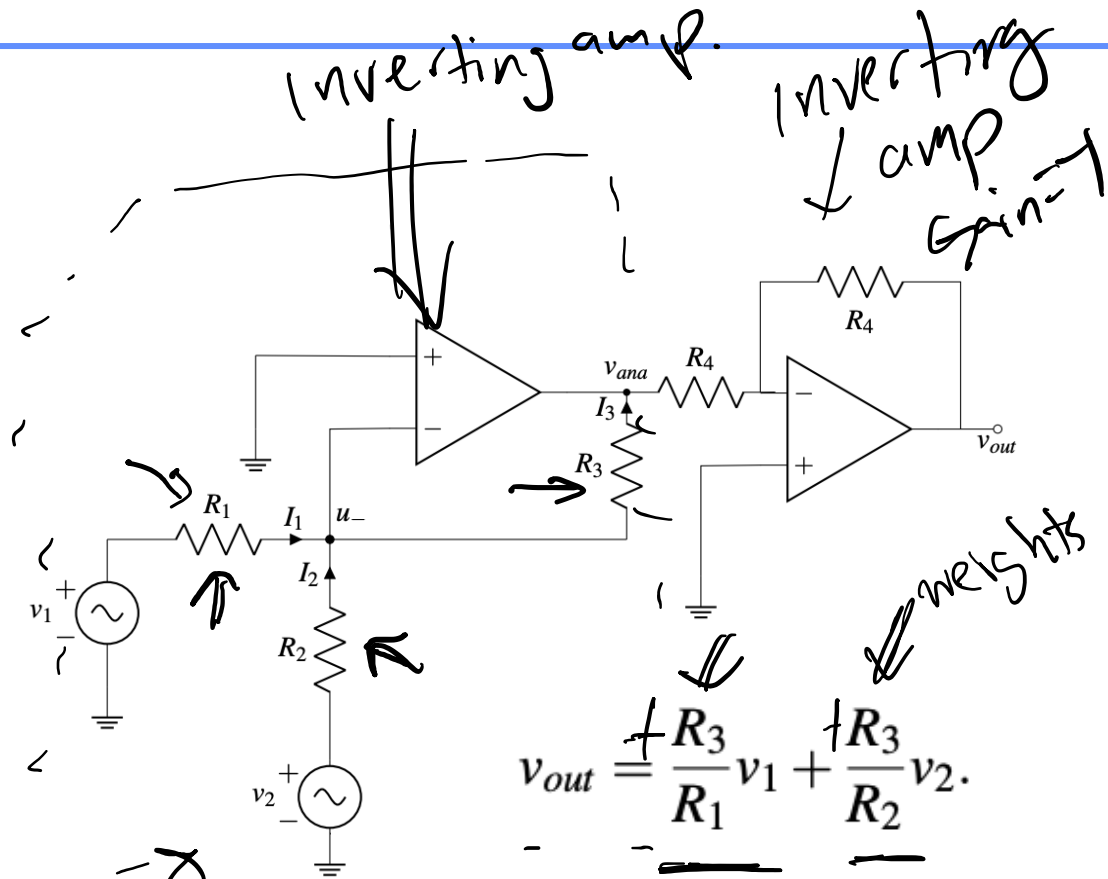 inverting amp.
inverting
amp
Gain=-1
R4
+
−
vana
R4
I3
R3
−
+
vout
R1
I1
u−
I2
+
v1
−
R2
+
v2
−
weights
+ +
vout = R3/R1 v1 + R3/R2 v2.